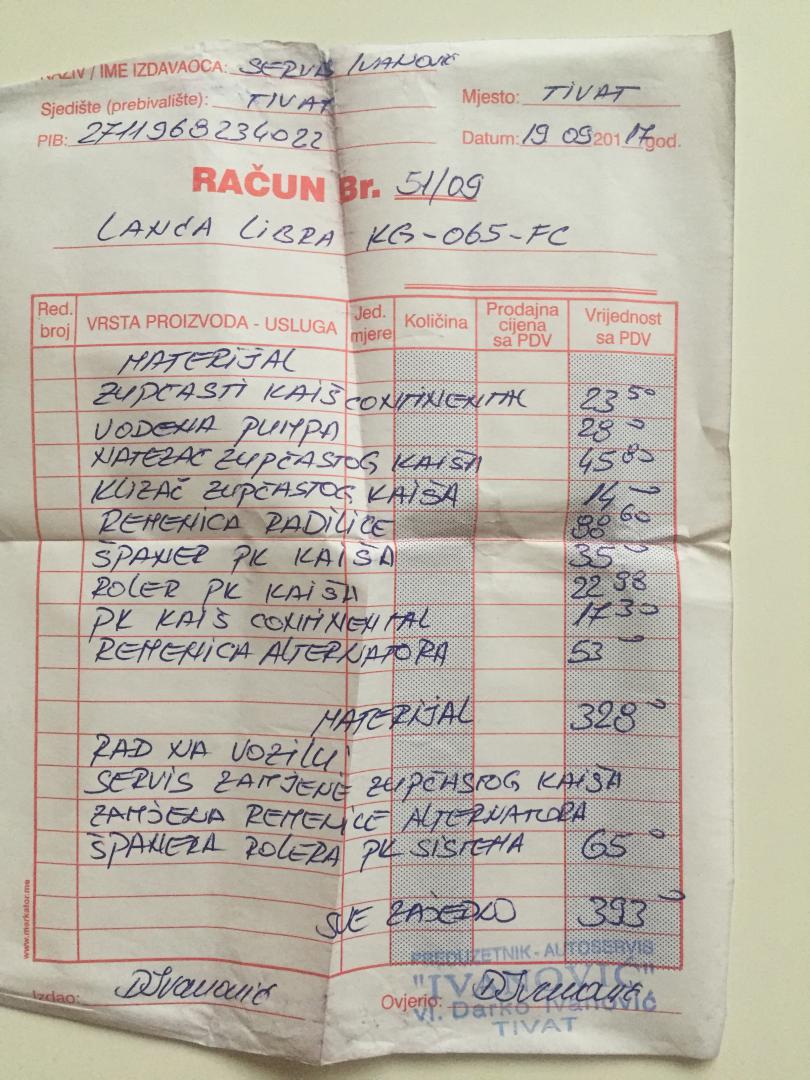 NAZIV / IME IZDAVAOCA: SERVIS IVANOVIĆ
Sjedište (prebivalište): TIVAT
Mjesto: TIVAT
PIB: 2711968234022
Datum: 19 09 2017 god.
RAČUN Br. 51/09
LANĆA LIBRA KG-065-FC
Red. broj
VRSTA PROIZVODA - USLUGA
Jed. mjere
Količina
Prodajna cijena sa PDV
Vrijednost sa PDV
MATERIJAL
ZUPČASTI KAIŠ CONTINENTAL 23 50
VODENA PUMPA 28 -
NATEZAČ ZUPČASTOG KAIŠA 45 80
KLIZAČ ZUPČASTOG KAIŠA 14 -
REMENICA RADILICE 88 60
ŠPANER PK KAIŠA 35 -
ROLER PK KAIŠA 22 98
PK KAIŠ CONTINENTAL 17 30
REMENICA ALTERNATORA 53 -
MATERIJAL 328 -
RAD NA VOZILU
SERVIS ZAMJENE ZUPČASTOG KAIŠA
ZAMJENA REMENICE ALTERNATORA
ŠPANERA ROLERA PK SISTEMA 65 -
SVE ZAJEDNO 393 -
www.markator.me
Izdao: DIvanović
Ovjerio: DIvanović
PREDUZETNIK - AUTOSERVIS
"IVANOVIĆ"
vl. Darko Ivanović
TIVAT